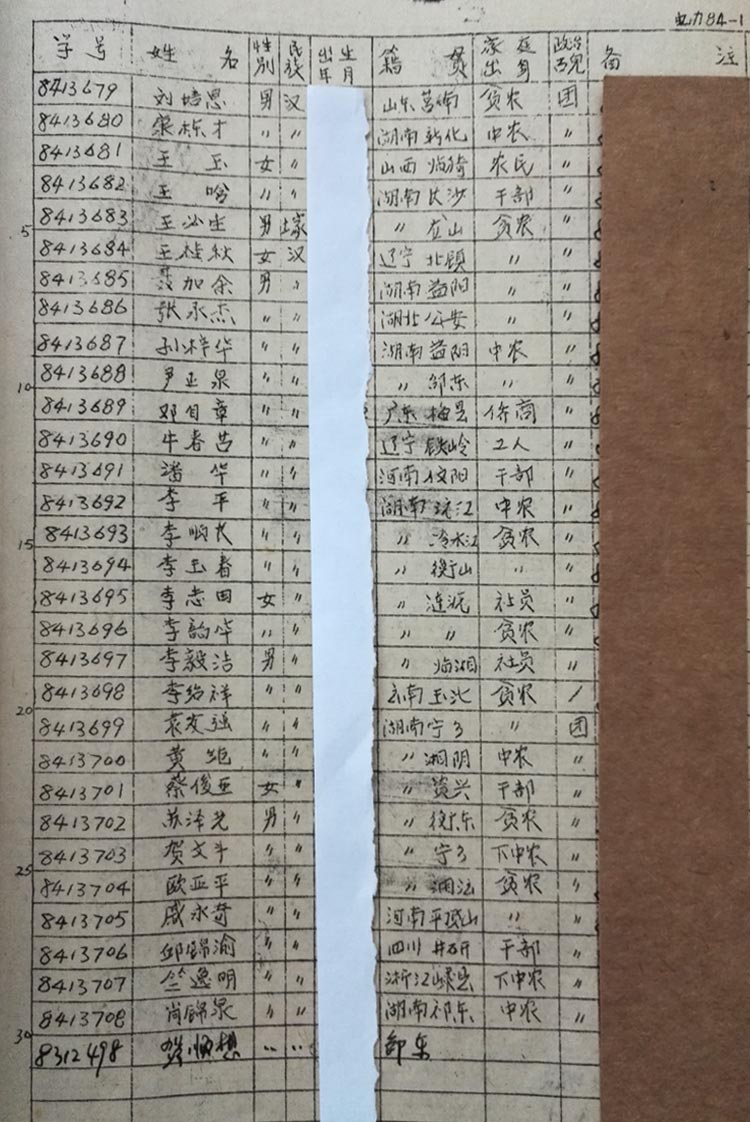 力84-1
学号 姓名 性别 民族 出生年月 籍贯 家庭出身 政治面貌 备注
8413679 刘培恩 男 汉 山东莒南 贫农 团
8413680 栋才 〃 〃 湖南新化 中农 〃
8413681 王玉 女 〃 山西临猗 农民 〃
8413682 王晗 〃 〃 湖南长沙 干部 〃
5 8413683 王必生 男 土家 〃 龙山 贫农 〃
8413684 王桂秋 女 汉 辽宁北镇 〃 〃
8413685 聂加余 男 〃 湖南益阳 〃 〃
8413686 张永杰 〃 〃 湖北公安 〃 〃
8413687 孙梓华 〃 〃 湖南益阳 中农 〃
10 8413688 尹正泉 〃 〃 〃 邵东 〃 〃
8413689 邓自章 〃 〃 广东梅县 侨商 〃
8413690 牛春 〃 〃 辽宁铁岭 工人 〃
8413691 潘华 〃 〃 河南 干部 〃
8413692 李平 〃 〃 湖南沅江 中农 〃
15 8413693 李顺长 〃 〃 〃 冷水江 贫农 〃
8413694 李玉春 〃 〃 〃 衡山 〃 〃
8413695 李志田 女 〃 〃 涟源 社员 〃
8413696 李韵华 〃 〃 〃 〃 贫农 〃
8413697 李毅洁 男 〃 〃 临湘 社员 〃
20 8413698 李绍祥 〃 〃 云南玉北 贫农 /
8413699 袁友强 〃 〃 湖南宁乡 〃 团
8413700 黄炬 〃 〃 〃 湘阴 中农 〃
8413701 蔡俊亚 女 〃 〃 资兴 干部 〃
8413702 苏泽光 男 〃 〃 衡东 贫农 〃
25 8413703 贺文斗 〃 〃 〃 宁乡 下中农 〃
8413704 欧亚平 〃 〃 〃 贫农 〃
8413705 戚永奇 〃 〃 河南平顶山 〃 〃
8413706 邱锦渝 〃 〃 四川井研 干部 〃
8413707 竺逸明 〃 〃 浙江嵊县 下中农 〃
30 8413708 肖锦泉 〃 〃 湖南祁东 中农 〃
8312498 贺顺想 〃 〃 邵东